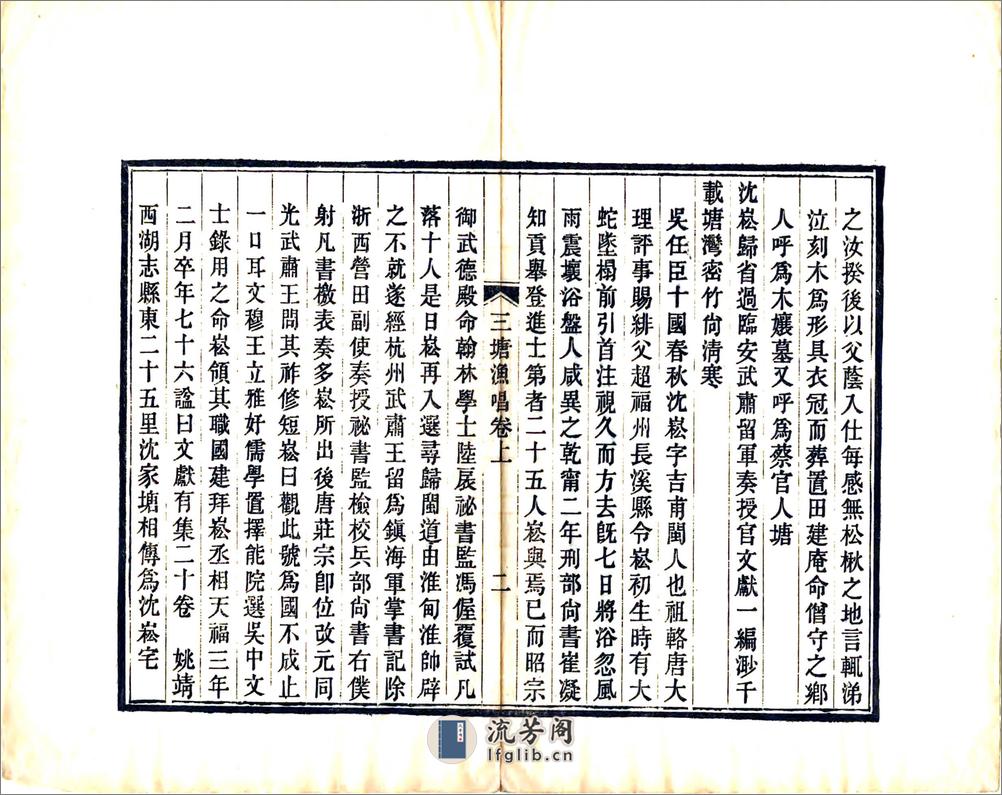 之汝揆後以父蔭入仕每感無松楸之地言輒涕
泣刻木爲形具衣冠而葬置田建庵命僧守之鄉
人呼爲木孃墓又呼爲蔡官人塘
沈崧歸省過臨安武肅留軍奏授官文獻一編渺千
載塘灣密竹尙淸寒
吳任臣十國春秋沈崧字吉甫閩人也祖輅唐大
理評事賜緋父超福州長溪縣令崧初生時有大
蛇墜榻前引首注視久而方去旣七日將浴忽風
雨震壞浴盤人咸異之乾甯二年刑部尙書崔凝
知貢舉登進士第者二十五人崧與焉已而昭宗
三塘漁唱卷上
二
御武德殿命翰林學士陸扆祕書監馮渥覆試凡
落十人是日崧再入選尋歸閩道由淮甸淮帥辟
之不就遂經杭州武肅王留爲鎭海軍掌書記除
浙西營田副使奏授祕書監檢校兵部尙書右僕
射凡書檄表奏多崧所出後唐莊宗卽位改元同
光武肅王問其祚修短崧曰觀此號爲國不成止
一口耳文穆王立雅好儒學置擇能院選吳中文
士錄用之命崧領其職國建拜崧丞相天福三年
二月卒年七十六諡曰文獻有集二十卷 姚靖
西湖志縣東二十五里沈家塘相傳爲沈崧宅
流芳阁
lfglib.cn